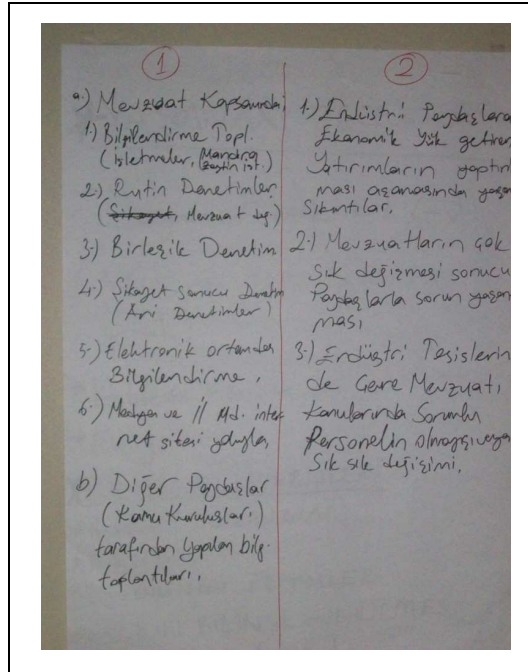 1
a.) Mevzuat Kapsamında
1.) Bilgilendirme Topl.
(İşletmeler, Mandıra
zeytin işl.)
2.) Rutin Denetimler
(Şikayet, Mevzuat değ.)
3.) Birleşik Denetim
4.) Şikayet sonucu Denetim
(Ani Denetimler)
5.) Elektronik ortamda
Bilgilendirme.
6.) Medya ve İl Md. inter
net sitesi yoluyla
b) Diğer Paydaşlar
(Kamu Kuruluşları)
tarafından yapılan bilg.
toplantıları.
2
1.) Endüstri Paydaşlara
Ekonomik Yük getiren
Yatırımların yaptırıl
ması aşamasında yaşanan
Sıkıntılar.
2.) Mevzuatların çok
sık değişmesi sonucu
Paydaşlarla sorun yaşan
ması
3.) Endüstri Tesislerin
de Çevre Mevzuatı
konularında Sorumlu
Personelin olmayışı veya
Sık sık değişimi.